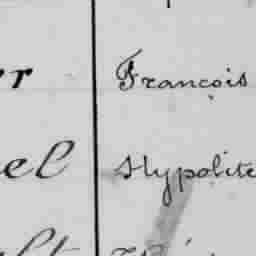 er François
el Hypolite